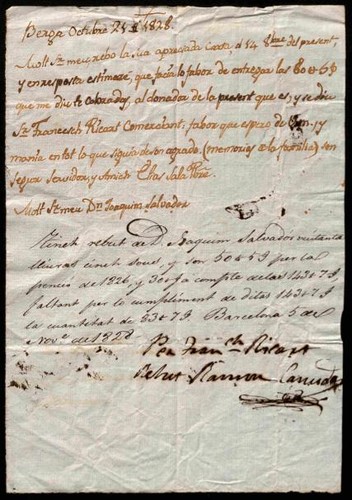 Berga Octubre 25 1828.
Molt Sr. meu, rebo la sua apreciada Carta, d 14 8bre del present,
y en resposta estimaré, que fácia lo fabor de entregar las 80 ℔ 5 §
que me diu te cobradas, al donador de la present que es, y se diu
Sr. Francesch Ricart Comerciant, fabor que espero de Vm. y
mania en tot lo que siguia de son agrado. (memorias a la familia) son
Segur Servidor, y Amich
Molt Sr. meu Dn. Joaquim Salvador
Tinch rebut de D. Joaquim Salvador vuitanta
lliuras cinch sous, y son 50 ℔ 5 § per las
de 1826, y 30 ℔ a compte de las 143 ℔ 7 §
faltant per lo cumpliment de ditas 143 ℔ 7 §
la cuantitat de ℔ 7 § Barcelona 5 de
Nove. de 1828
Per Franch. Ricart
Ramon